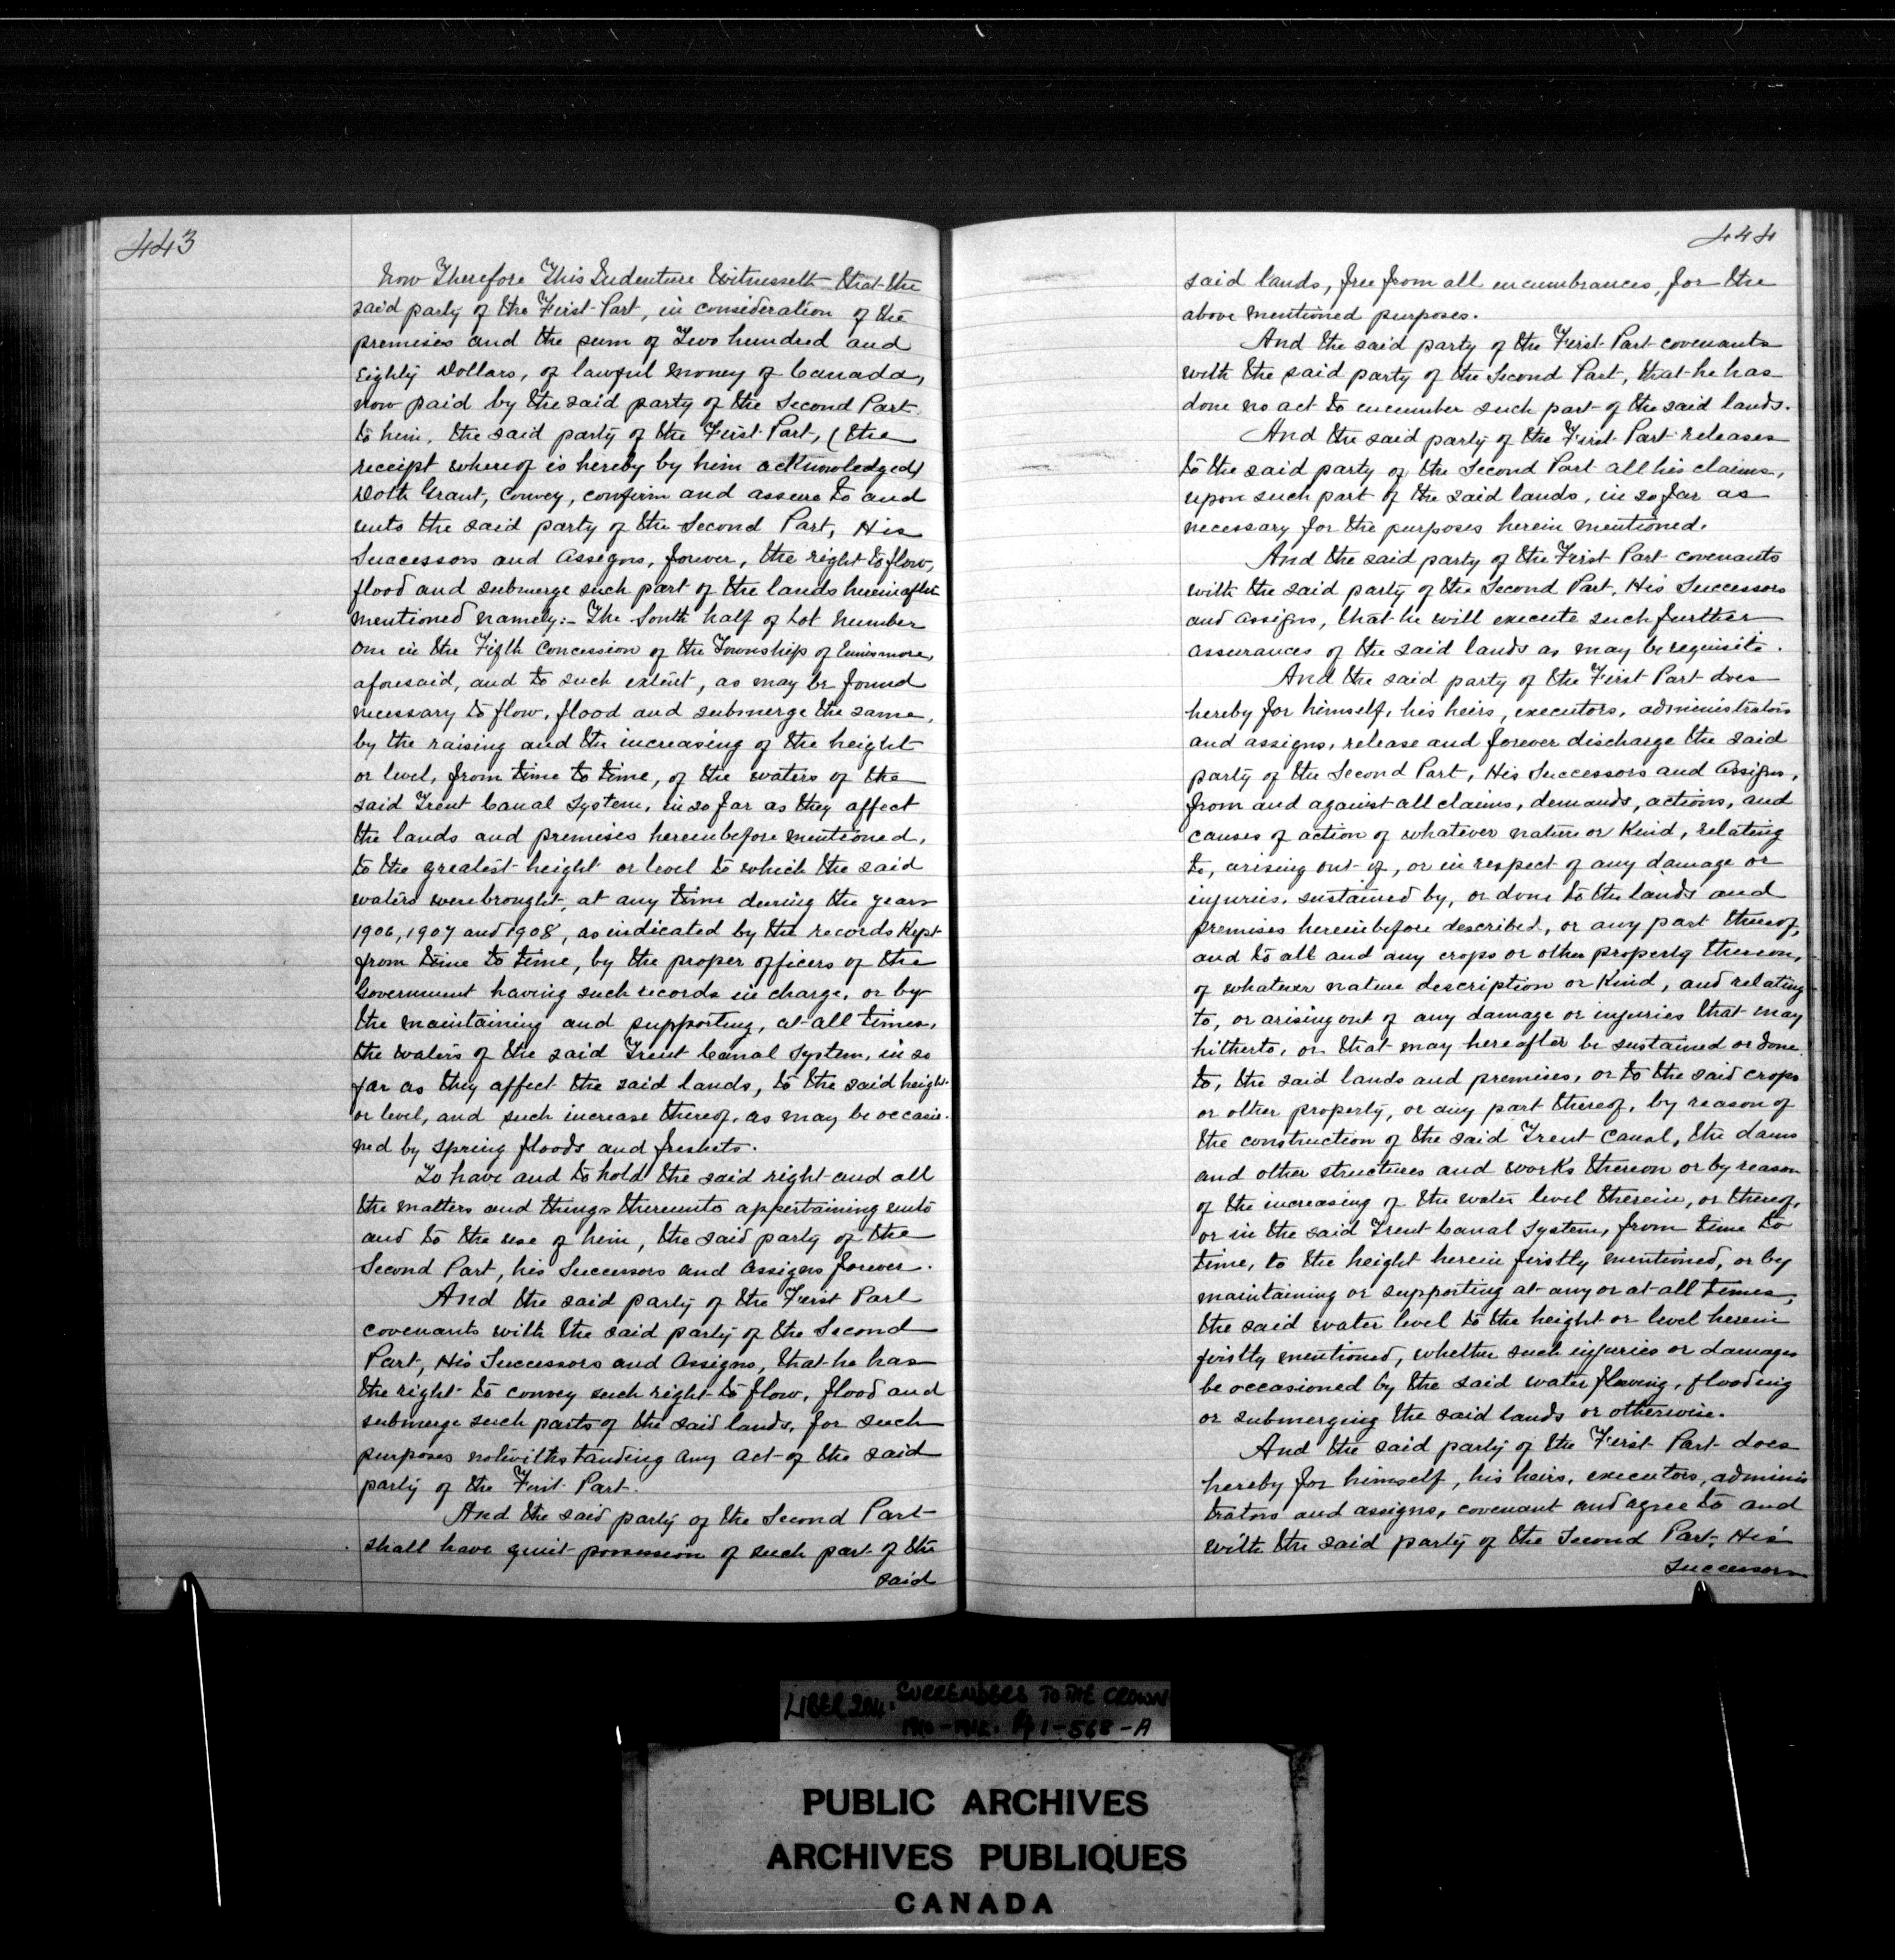 443
Now Therefore This Indenture Witnesseth that the
said party of the First Part, in consideration of the
premises and the sum of Two hundred and
Eighty Dollars, of lawful money of Canada,
now paid by the said party of the Second Part
to him, the said party of the First Part, (the
receipt whereof is hereby by him acknowledged)
Doth Grant, Convey, confirm and assure to and
unto the said party of the Second Part, His
Successors and Assigns, forever, the right to flow,
flood and submerge such part of the lands hereinafter
mentioned namely:- The South half of Lot Number
One in the Fifth Concession of the Township of Ennismore,
aforesaid, and to such extent, as may be found
necessary to flow, flood and submerge the same,
by the raising and the increasing of the height
or level, from time to time, of the waters of the
said Trent Canal System, in so far as they affect
the lands and premises hereinbefore mentioned,
to the greatest height or level to which the said
waters were brought, at any time during the years
1906, 1907 and 1908, as indicated by the records kept
from time to time, by the proper officers of the
Government having such records in charge, or by
the maintaining and supporting, at all times,
the waters of the said Trent Canal System, in so
far as they affect the said lands, to the said height
or level, and such increase thereof, as may be occasio-
ned by Spring floods and freshets.
To have and to hold the said right and all
the matters and things thereunto appertaining unto
and to the use of him, the said party of the
Second Part, his Successors and Assigns forever.
And the said party of the First Part
covenants with the said party of the Second
Part, His Successors and Assigns, that he has
the right to convey such right to flow, flood and
submerge such parts of the said lands, for such
purposes notwithstanding any act of the said
party of the First Part.
And the said party of the Second Part
shall have quiet possession of such part of the
said
444
said lands, free from all encumbrances, for the
above mentioned purposes.
And the said party of the First Part covenants
with the said party of the Second Part, that he has
done no act to encumber such part of the said lands.
And the said party of the First Part releases
to the said party of the Second Part all his claims,
upon such part of the said lands, in so far as
necessary for the purposes herein mentioned.
And the said party of the First Part covenants
with the said party of the Second Part, His Successors
and Assigns, that he will execute such further
assurances of the said lands as may be requisite.
And the said party of the First Part does
hereby for himself, his heirs, executors, administrators
and assigns, release and forever discharge the said
party of the Second Part, His Successors and Assigns,
from and against all claims, demands, actions, and
causes of action of whatever nature or kind, relating
to, arising out of, or in respect of any damage or
injuries, sustained by, or done to the lands and
premises hereinbefore described, or any part thereof,
and to all and any crops or other property thereon,
of whatever nature description or kind, and relating
to, or arising out of any damage or injuries that may
hitherto, or that may hereafter be sustained or done
to, the said lands and premises, or to the said crops
or other property, or any part thereof, by reason of
the construction of the said Trent Canal, the dams
and other structures and works thereon or by reason
of the increasing of the water level therein, or thereof,
or in the said Trent Canal System, from time to
time, to the height herein firstly mentioned, or by
maintaining or supporting at any or at all times,
the said water level to the height or level herein
firstly mentioned, whether such injuries or damages
be occasioned by the said water flowing, flooding
or submerging the said lands or otherwise.
And the said party of the First Part does
hereby for himself, his heirs, executors, adminis
trators and assigns, covenant and agree to and
with the said party of the Second Part, His
Successors
LIBER 204. SURRENDERS TO THE CROWN
1910-1912. Pg 1-568-A
PUBLIC ARCHIVES
ARCHIVES PUBLIQUES
CANADA